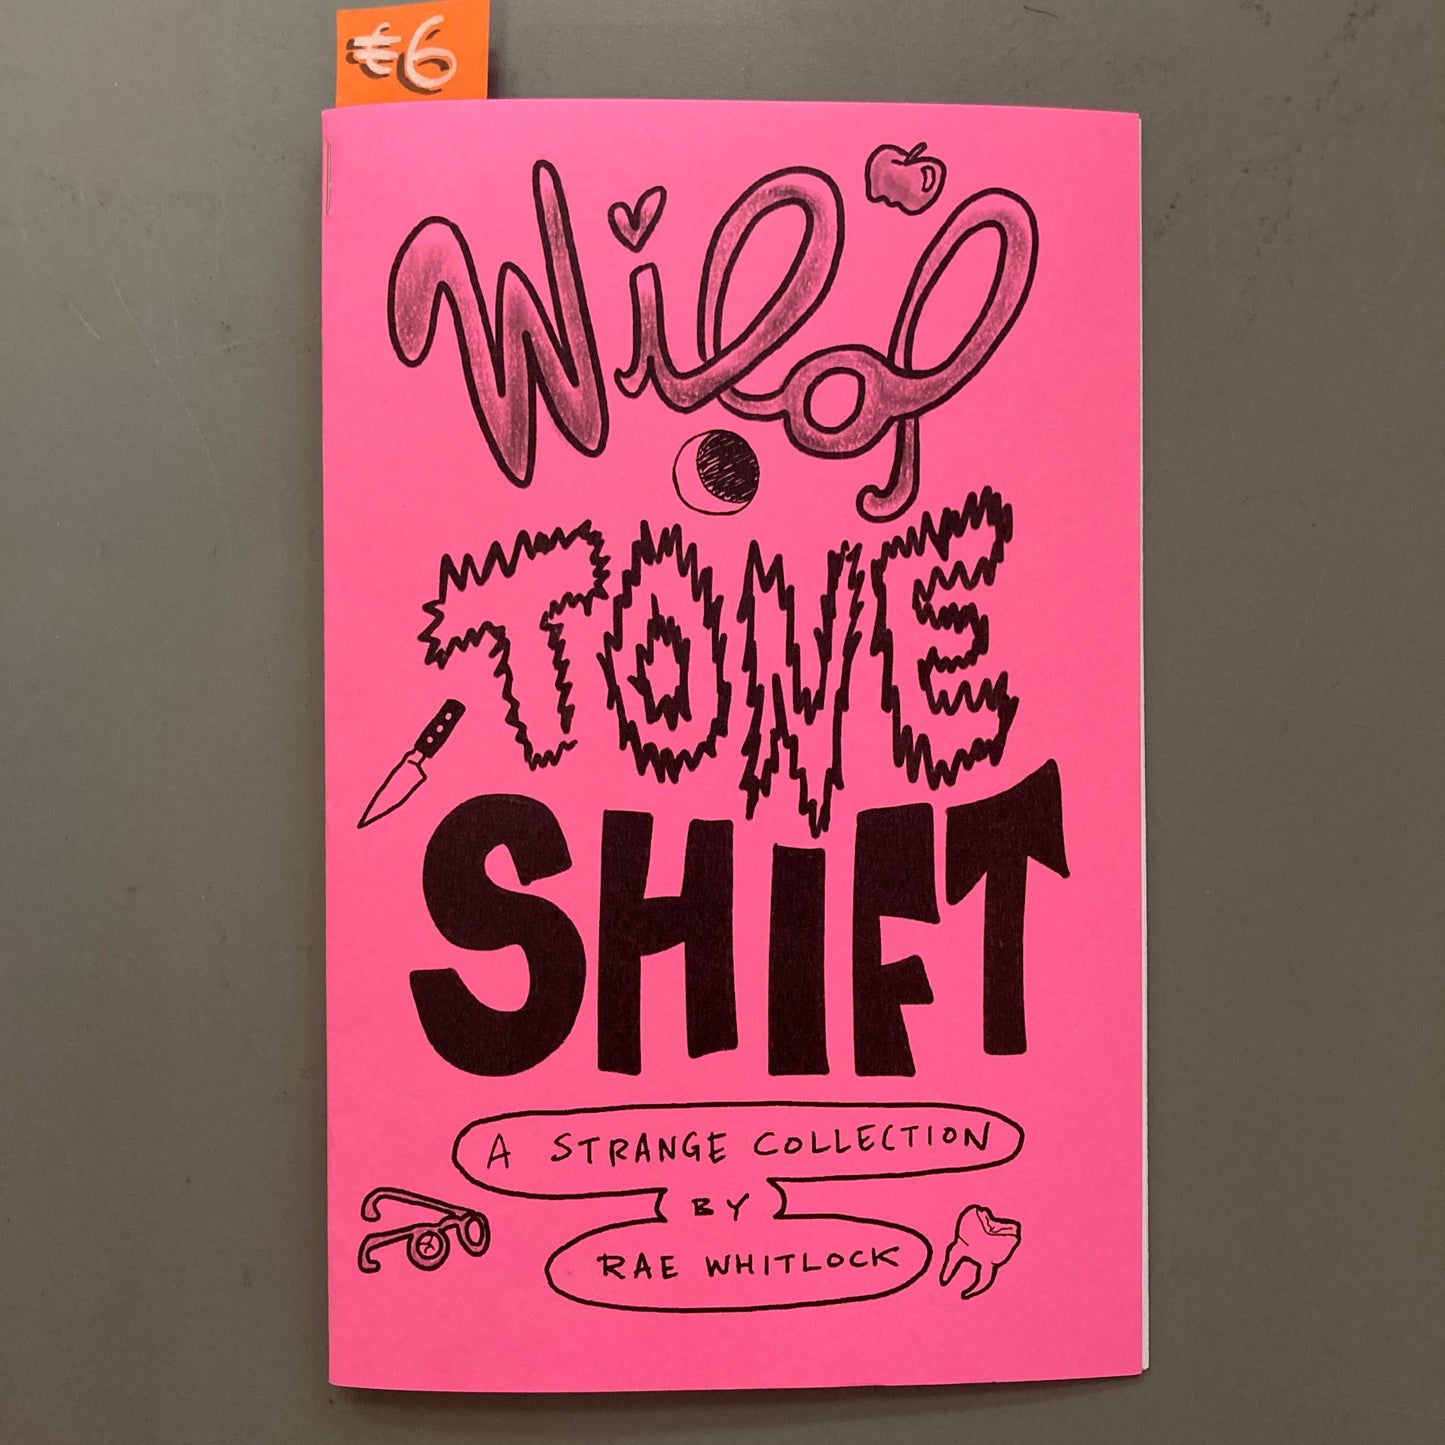 €6
Wild
TONE
SHIFT
A STRANGE COLLECTION
BY
RAE WHITLOCK